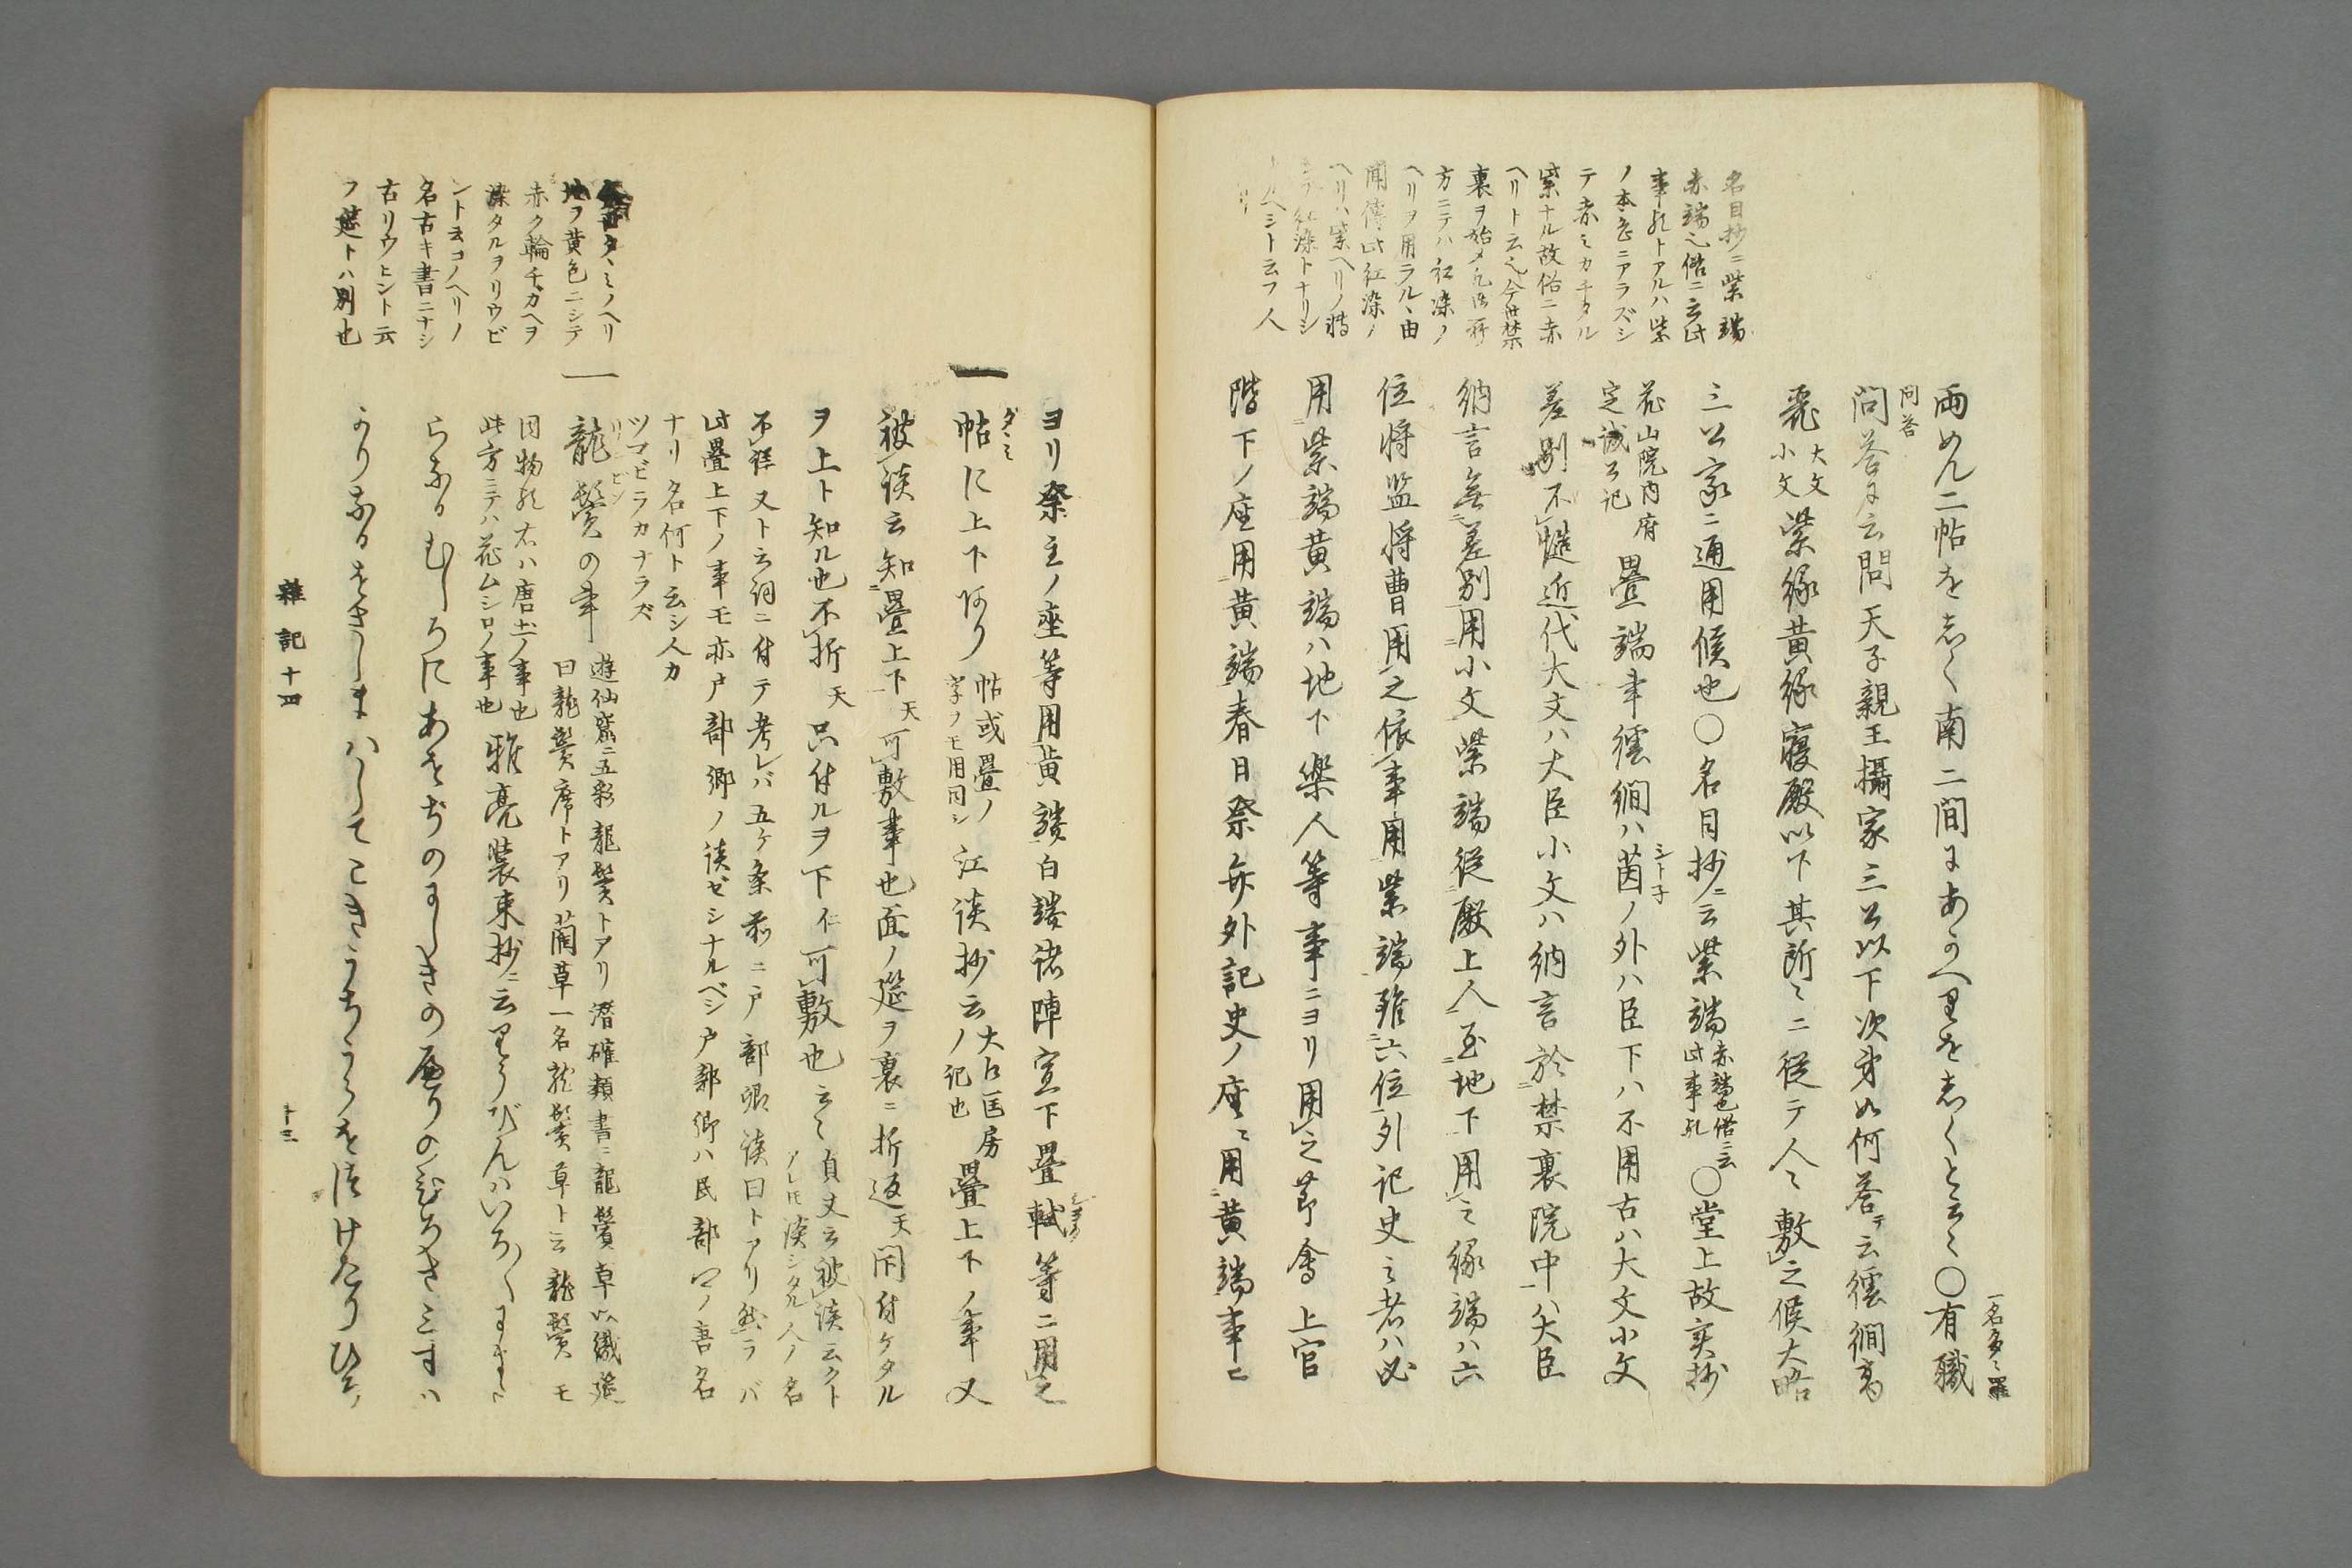 名目抄ニ紫端
赤端也俗ニ云此
事歟トアルハ紫
ノ本色ニアラズシ
テ赤ミカチタル
紫ナル故俗ニ赤
ヘリト云也今世禁
裏ヲ始メ
方ニテハ紅染ノ
ヘリヲ用ラルヽ由
聞傳此紅染ノ
ヘリハ紫ヘリノ
紅染トナリシ
ヘシト云フ人
両めん二帖を志く南二間にあうへりを志くと云々〇有職
一名多々羅
問答
問答に云問天子親王攝家三公以下次第如何答テ云繧繝高
麗大文小文紫縁黄縁寝殿以下其所々ニ従テ人々敷之候大略
三公家ニ通用候也〇名目抄ニ云紫端赤端也俗ニ云此事歟〇堂上故実抄
花山院内府定誠公記 畳端事繧繝ハ茵ノ外ハ臣下ハ不用古ハ大文小文
シトネ
差別不慥近代大文ハ大臣小文ハ納言於禁裏院中ハ大臣
納言無差別用小文紫端従殿上人至地下用之縁端ハ六
位将監将曹用之依事用紫端雖六位外記史之者ハ必
用紫端黄端ハ地下樂人等事ニヨリ用之節會上官
階下ノ座用黄端春日祭弁外記史ノ座ニ用黄端事ニ
ヨリ祭主ノ座等用黄端白端諸陣宣下畳軾等ニ用之
タヽミ
帖に上下阿り帖或畳ノ字ヲモ用同シ 江談抄云大江匡房ノ記也 畳上下ノ事又
被談云知畳上下天可敷事也面ノ筵ヲ裏ニ折返天閇付ケタル
ヲ上ト知ル也不折天只付ルヲ下仁可敷也云々貞丈云被談云クト
アレ圧談シタル人ノ名
不詳又ト云詞ニ付テ考レバ五ケ条前ニ戸部卿談曰トアリ然ラバ
此畳上下ノ事モ亦戸部卿ノ談ゼシナルベシ戸部卿ハ民部卿ノ唐名
ナリ名何ト云シ人カ
ツマビラカナラズ
リウビン
龍鬢の事 遊仙窟ニ五彩龍鬢トアリ潜確類書ニ龍鬢草以織筵
曰龍鬢席トアリ藺草一名龍鬢草ト云龍鬢モ
同物歟右ハ唐土ノ事也
此方ニテハ花ムシロノ事也 雅亮装束抄ニ云里うびんハいろ〳〵にま多
らなるむしろにあをぢのにしきのへりのひろさ三寸ハ
かりなるをさしまハしてこきうちうらを徒けたりひろ
タヽミノヘリ
地ヲ黄色ニシテ
赤ク輪チガヘヲ
染タルヲリウビ
ント云コノヘリノ
名古キ書ニナシ
古リウヒント云
フ筵トハ別也
雜記十四
十三